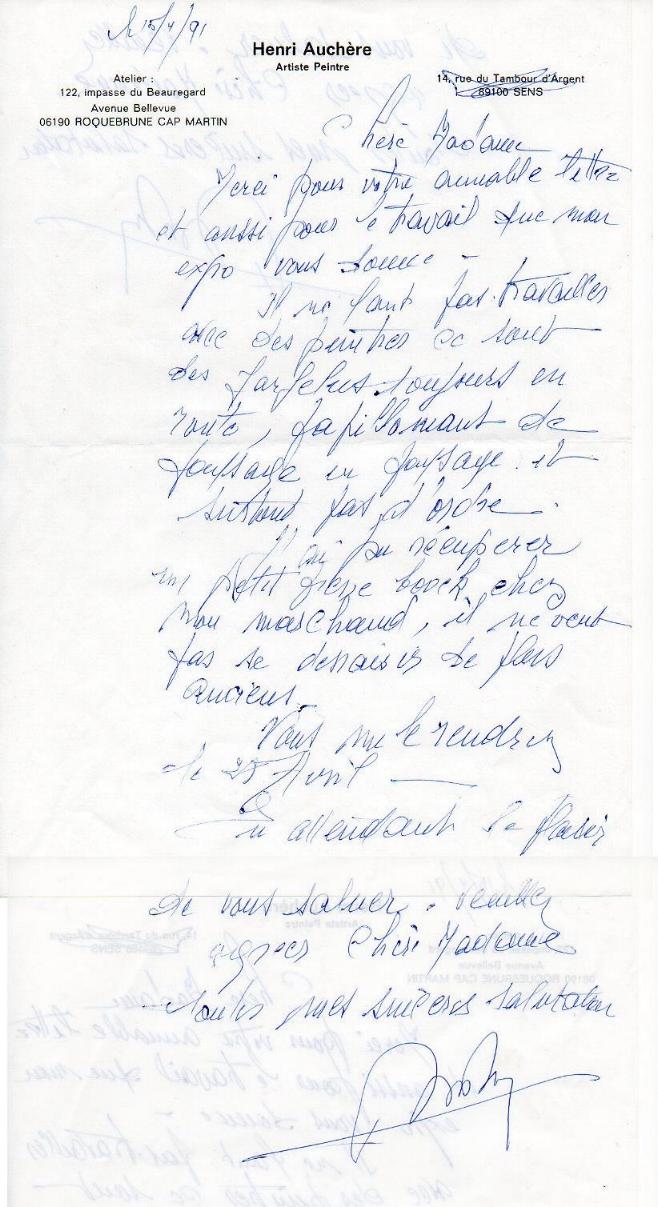 le 15/4/91
Henri Auchère
Artiste Peintre
Atelier :
122, impasse du Beauregard
Avenue Bellevue
06190 ROQUEBRUNE CAP MARTIN
14, rue du Tambour d'Argent
89100 SENS
Chère Madame
Merci pour votre aimable lettre
et aussi pour le travail que mon
expo vous donne -
Il ne faut pas travailler
avec des peintres ce sont
des farfelus toujours en
route, papillonnant de
paysage en paysage. et
surtout pas d'ordre.
J'ai pu récuperer
un petit presse boock chez
mon marchand, il ne veut
pas se dessaisir de plus
anciens.
Vous me le rendrez
le 25 Avril
En attendant le plaisir
de vous saluer. veuillez
agréer Chère Madame
toutes mes sincères salutation